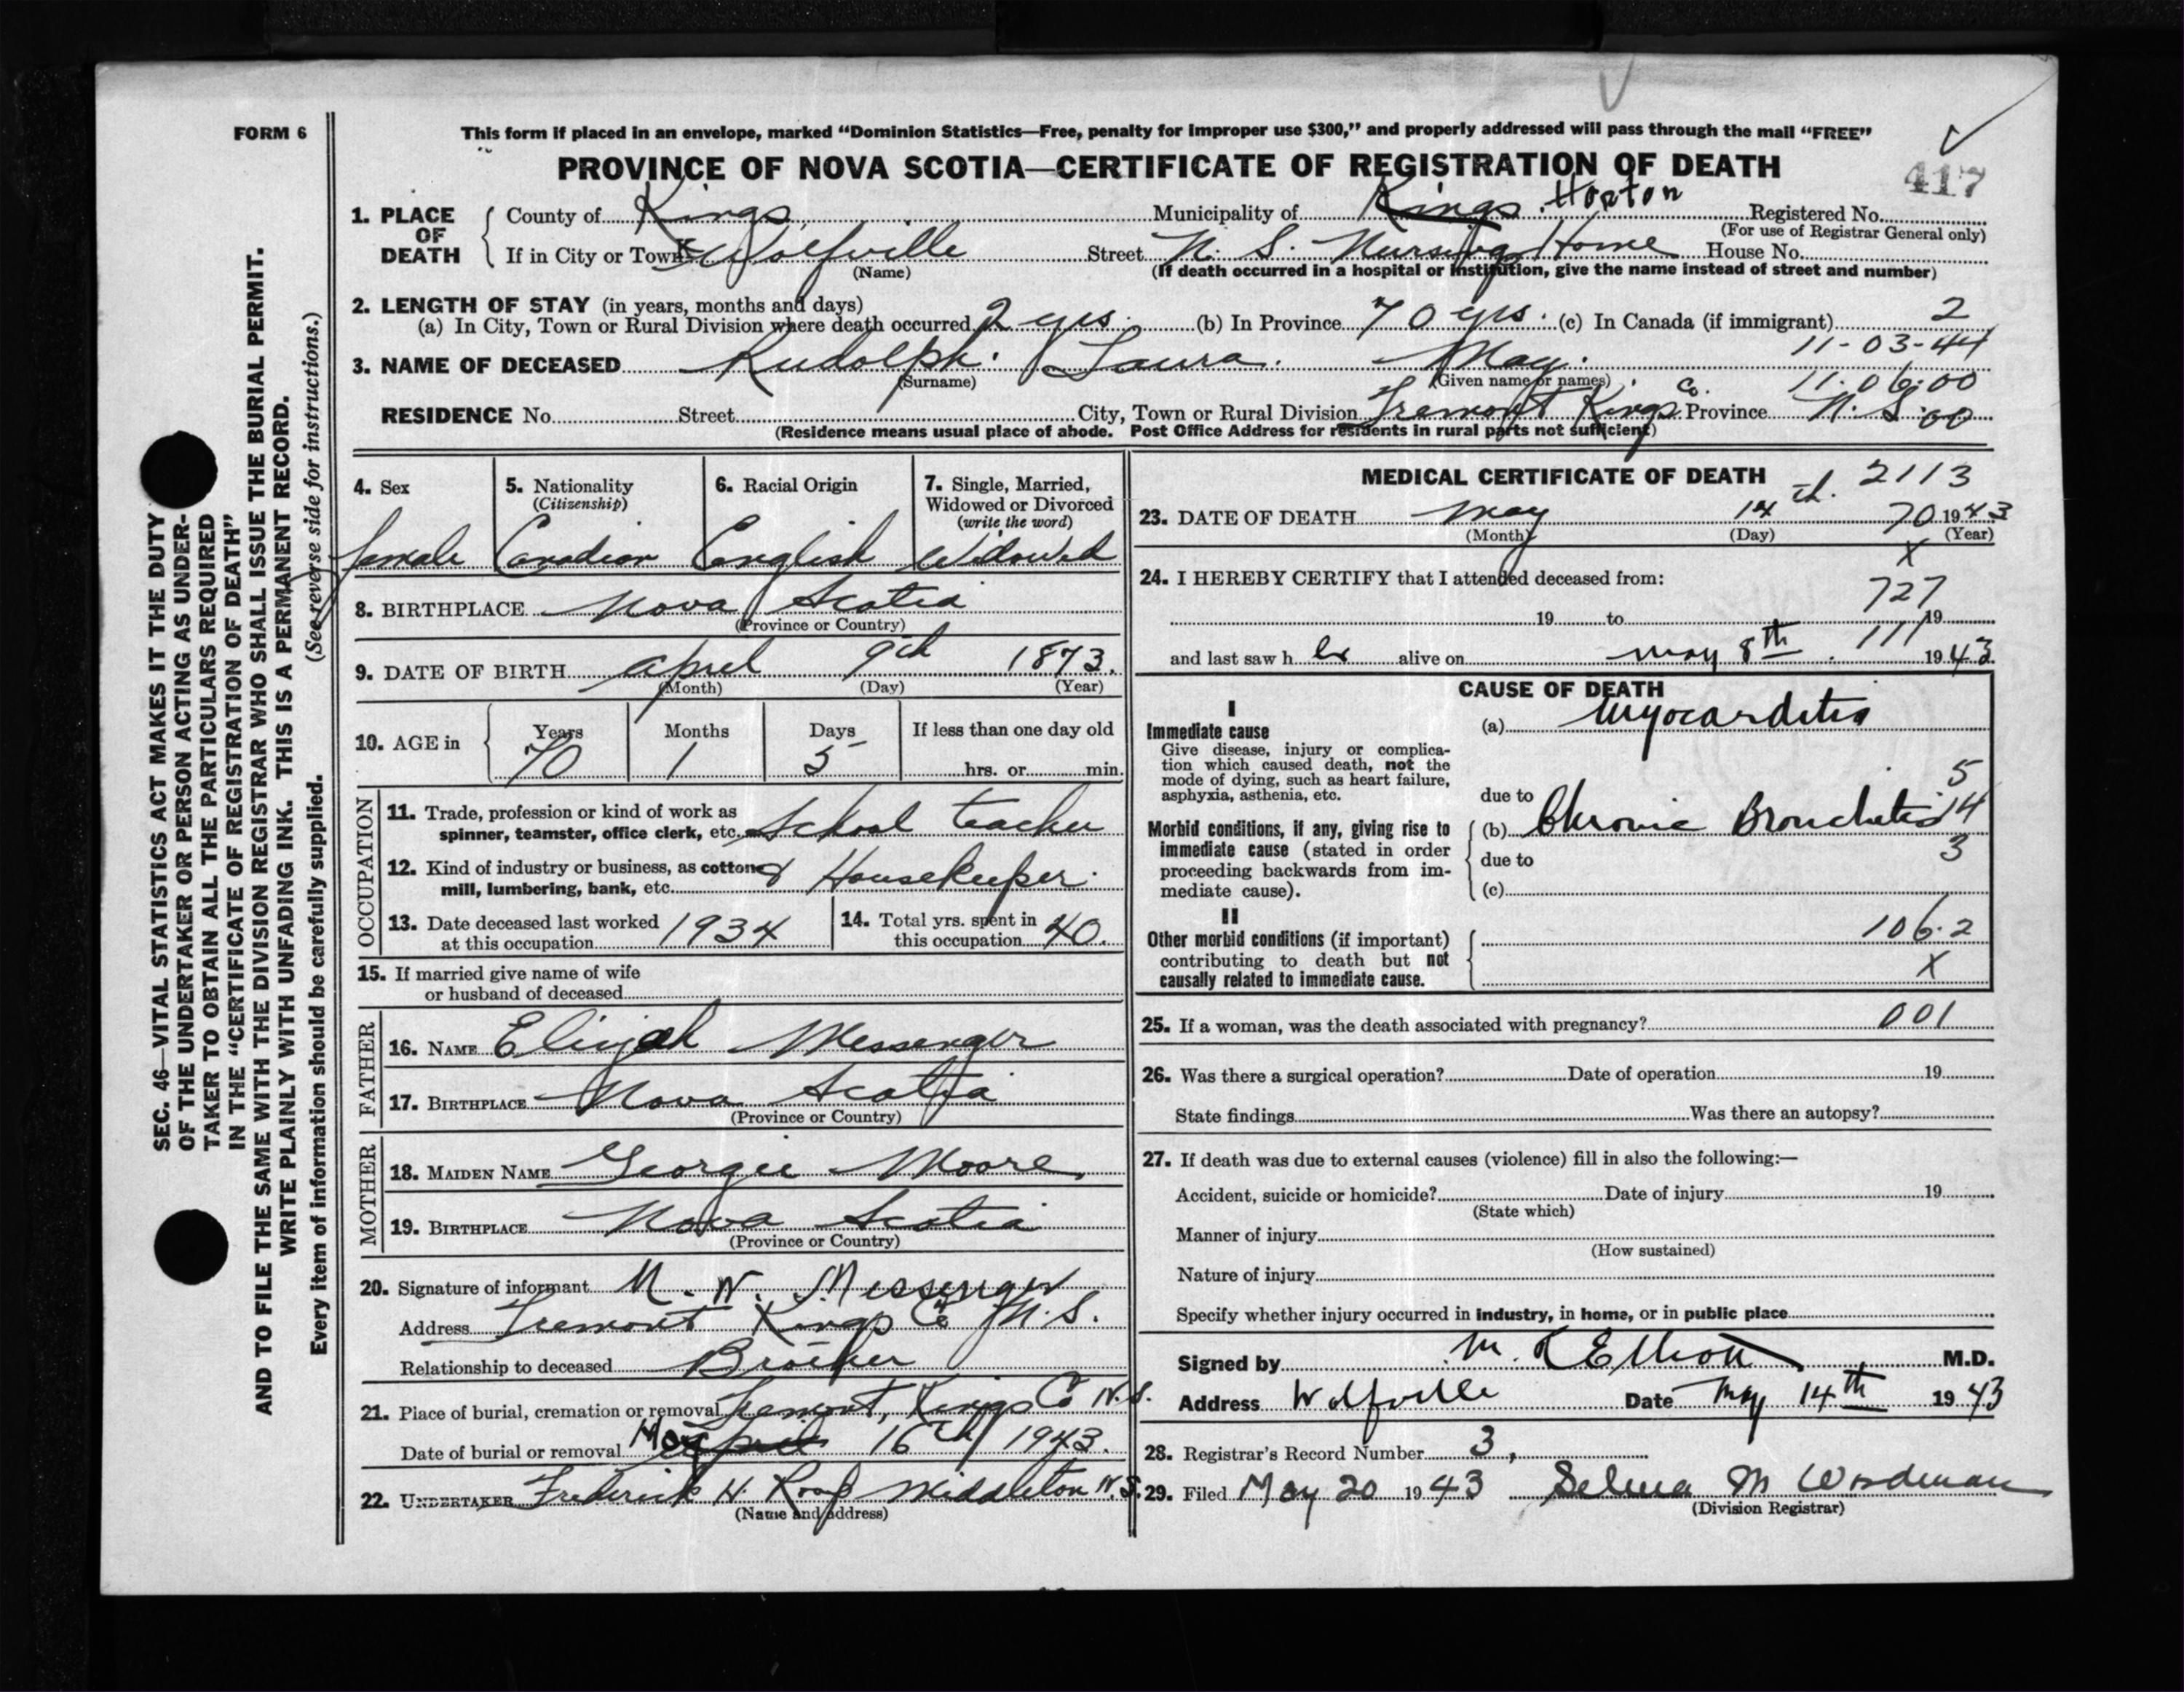 FORM 6
This form if placed in an envelope, marked “Dominion Statistics—Free, penalty for improper use $300,” and properly addressed will pass through the mail “FREE”
PROVINCE OF NOVA SCOTIA—CERTIFICATE OF REGISTRATION OF DEATH
417
1. PLACE OF DEATH
County of Kings Municipality of Kings. Horton Registered No.
(For use of Registrar General only)
If in City or Town Wolfville Street N. S. Nursing Home House No.
(Name) (If death occurred in a hospital or institution, give the name instead of street and number)
2. LENGTH OF STAY (in years, months and days)
(a) In City, Town or Rural Division where death occurred 2 yrs. (b) In Province 70 yrs. (c) In Canada (if immigrant) 2
11-03-44
3. NAME OF DECEASED Rudolph. Laura. May.
(Surname) (Given name or names)
11.06.00
RESIDENCE No. Street City, Town or Rural Division Tremont Kings Co. Province N. S. 00
(Residence means usual place of abode. Post Office Address for residents in rural parts not sufficient)
4. Sex female
5. Nationality (Citizenship) Canadian
6. Racial Origin English
7. Single, Married, Widowed or Divorced (write the word) Widowed
8. BIRTHPLACE Nova Scotia
(Province or Country)
9. DATE OF BIRTH April 9th 1873.
(Month) (Day) (Year)
10. AGE in Years 70 Months 1 Days 5 If less than one day old hrs. or min.
OCCUPATION
11. Trade, profession or kind of work as spinner, teamster, office clerk, etc. School teacher
12. Kind of industry or business, as cotton mill, lumbering, bank, etc. & Housekeeper.
13. Date deceased last worked at this occupation 1934
14. Total yrs. spent in this occupation 40.
15. If married give name of wife or husband of deceased
FATHER
16. NAME Elijah Messenger
17. BIRTHPLACE Nova Scotia
(Province or Country)
MOTHER
18. MAIDEN NAME Georgie Moore
19. BIRTHPLACE Nova Scotia
(Province or Country)
20. Signature of informant M. W. Messenger
Address Tremont Kings Co N. S.
Relationship to deceased Brother
21. Place of burial, cremation or removal Tremont, Kings Co N. S.
Date of burial or removal May April 16th 1943.
22. UNDERTAKER Frederick H. Roop Middleton N. S.
(Name and address)
MEDICAL CERTIFICATE OF DEATH
2113
23. DATE OF DEATH May 14th. 70 1943
(Month) (Day) (Year)
X
24. I HEREBY CERTIFY that I attended deceased from:
727
19 to 19
111
and last saw h er alive on May 8th. 1943.
CAUSE OF DEATH
I
Immediate cause
Give disease, injury or complication which caused death, not the mode of dying, such as heart failure, asphyxia, asthenia, etc.
(a) Myocarditis
5
due to
14
Morbid conditions, if any, giving rise to immediate cause (stated in order proceeding backwards from immediate cause).
(b) Chronic Bronchitis
due to
3
(c)
II
Other morbid conditions (if important) contributing to death but not causally related to immediate cause.
106.2
X
25. If a woman, was the death associated with pregnancy? 001
26. Was there a surgical operation? Date of operation 19
State findings Was there an autopsy?
27. If death was due to external causes (violence) fill in also the following:—
Accident, suicide or homicide? Date of injury 19
(State which)
Manner of injury
(How sustained)
Nature of injury
Specify whether injury occurred in industry, in home, or in public place
Signed by M. R Elliott M.D.
Address Wolfville Date May 14th 1943
28. Registrar's Record Number 3,
29. Filed May 20 1943 Selma M Woodman
(Division Registrar)
SEC. 46—VITAL STATISTICS ACT MAKES IT THE DUTY
OF THE UNDERTAKER OR PERSON ACTING AS UNDER-
TAKER TO OBTAIN ALL THE PARTICULARS REQUIRED
IN THE “CERTIFICATE OF REGISTRATION OF DEATH”
AND TO FILE THE SAME WITH THE DIVISION REGISTRAR WHO SHALL ISSUE THE BURIAL PERMIT.
WRITE PLAINLY WITH UNFADING INK. THIS IS A PERMANENT RECORD.
Every item of information should be carefully supplied. (See reverse side for instructions.)